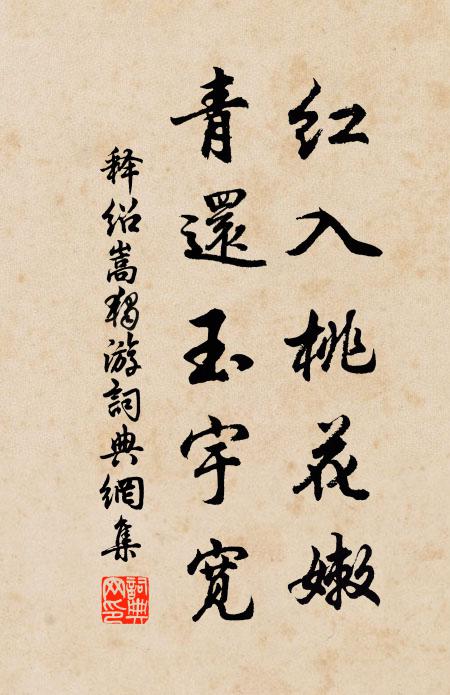 红入桃花嫩
青還玉宇寬
释绍嵩獨游詞典網集
詞典網印